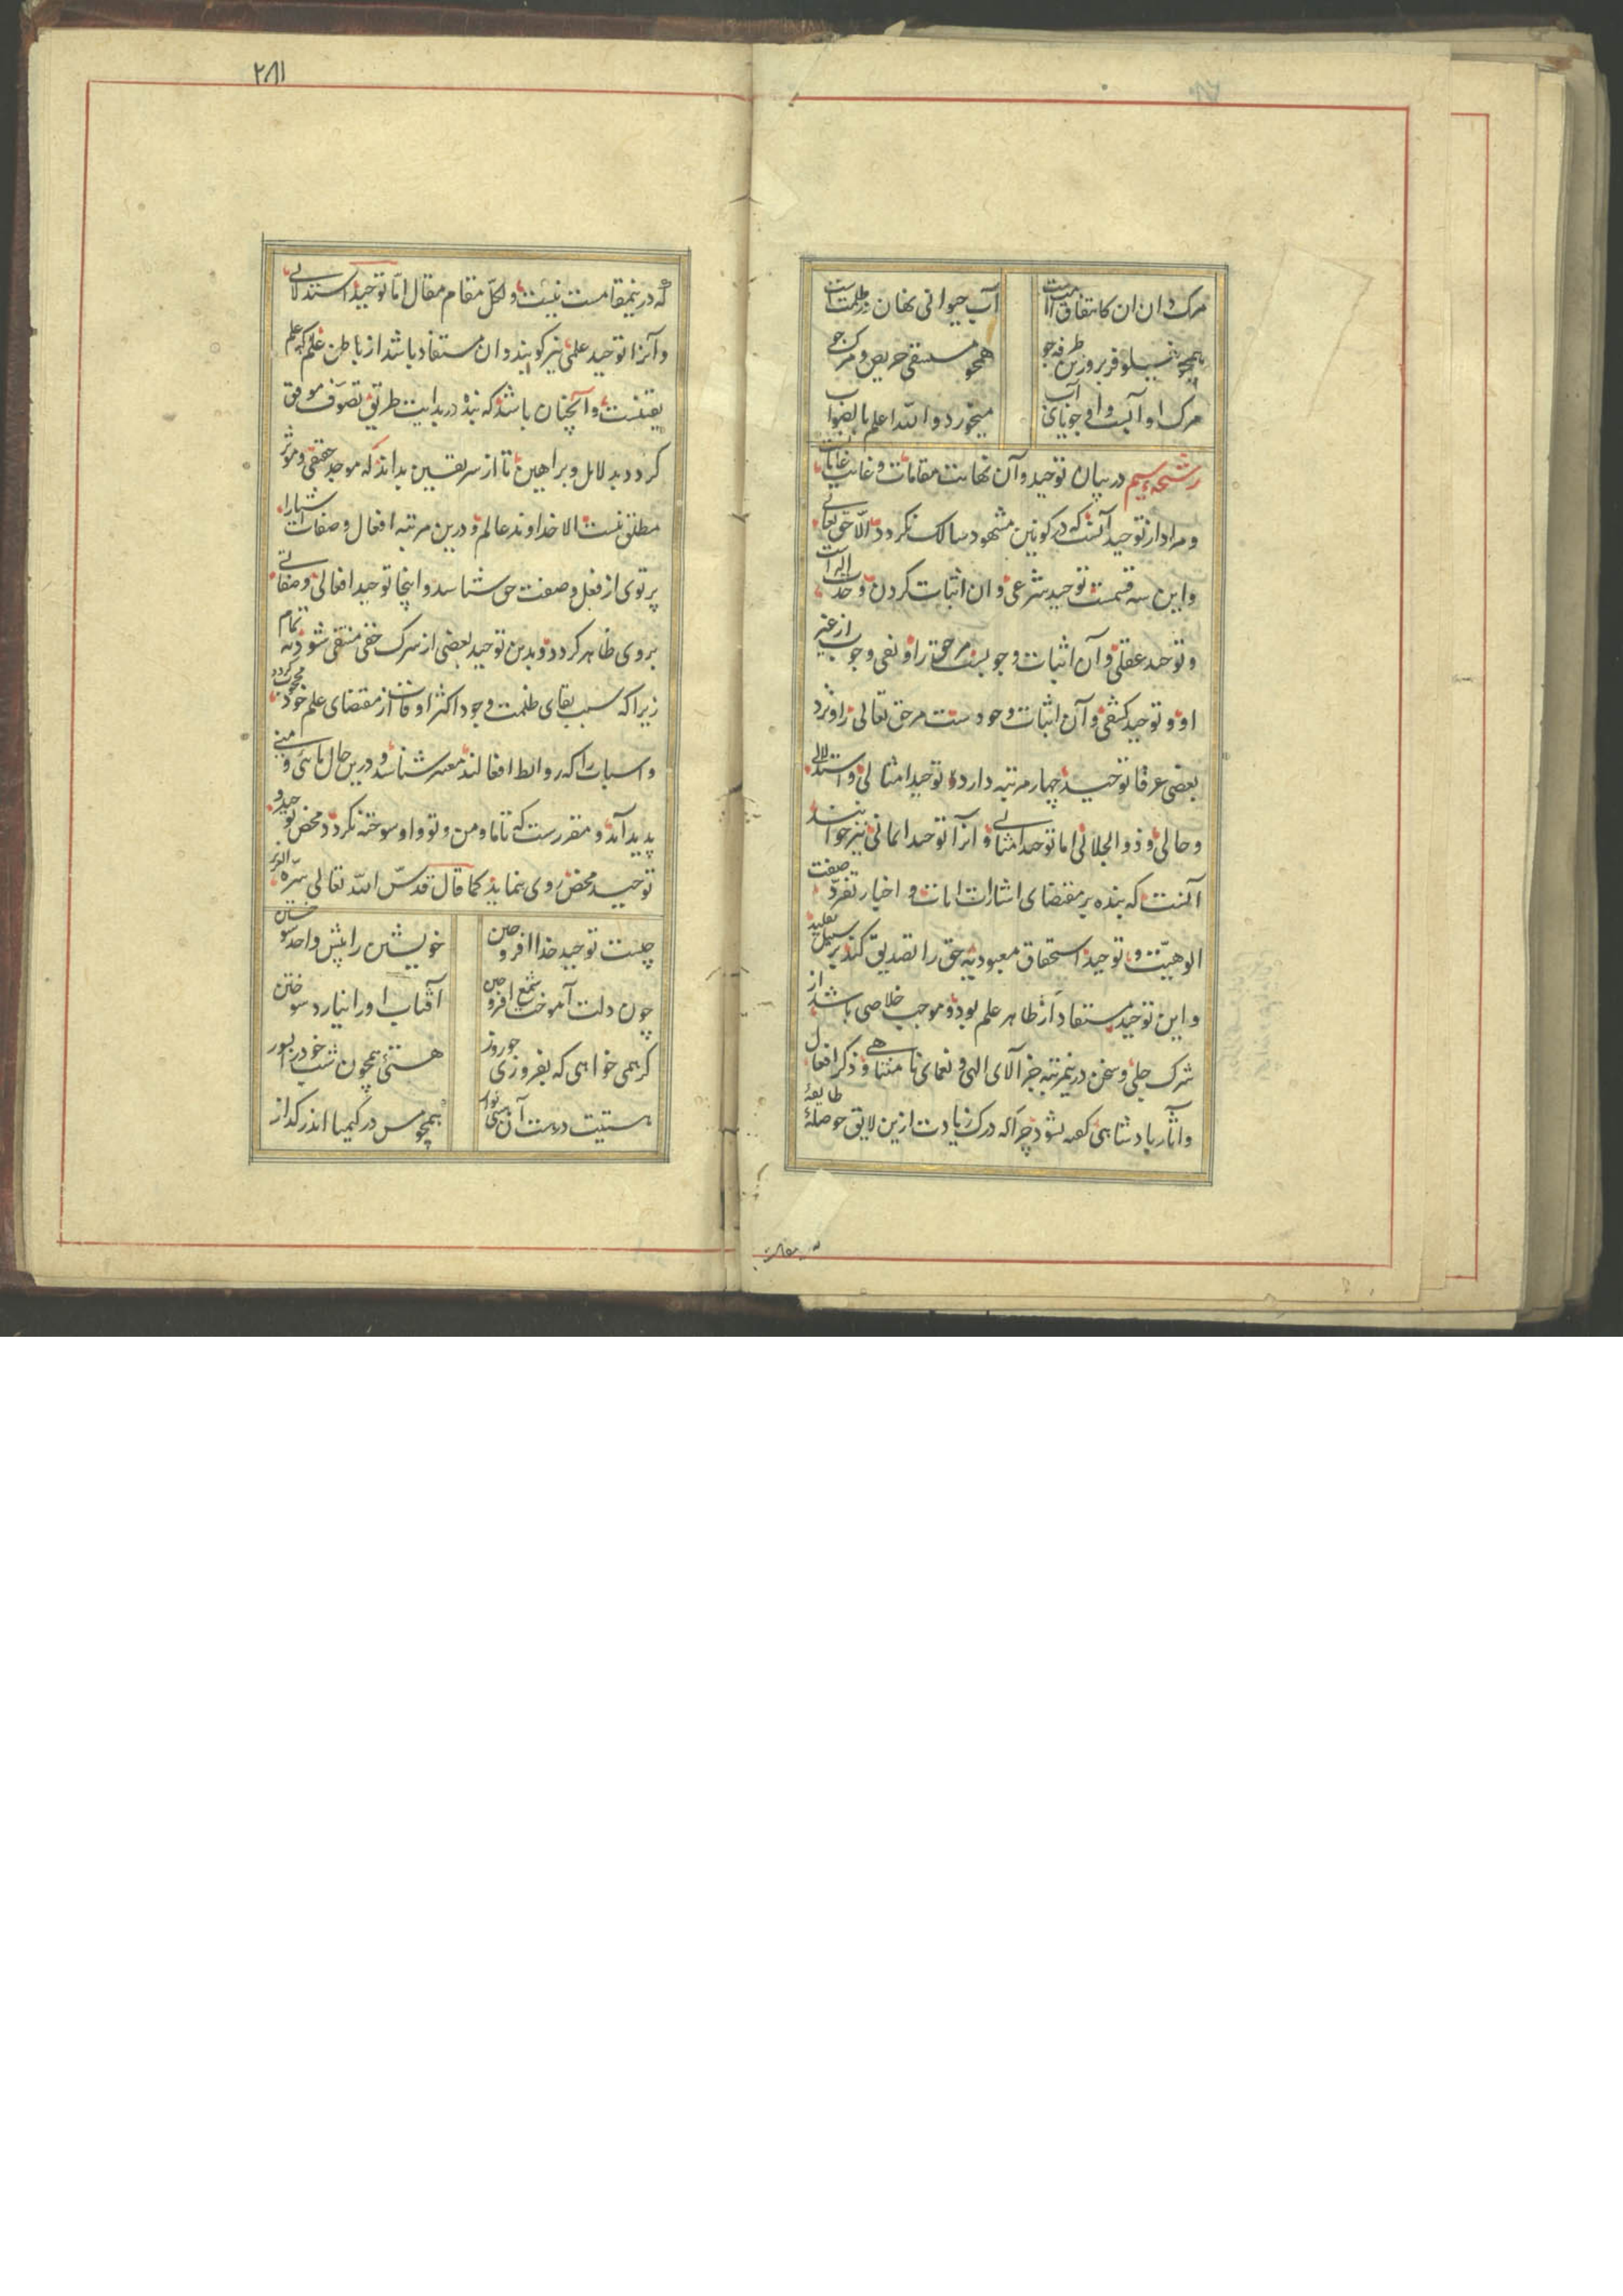 مرک دان ان کاتفاق امت است
آب حیوانی نهان در ظلمت است
همچو نیلوفر بروزین طرفه جو
همچو مستسقی حریص و مرک جو
مرک او آبست و او جویای آب
میخورد و الله اعلم بالصواب
رشحه سیم در بیان توحید و آن نهایت مقامات و غایت غایات
و مراد از توحید آنست که در کونین مشهود سالک نکردد الا حق تعالی
و این سه قسمست توحید شرعی و ان اثبات کردن وحدت اله است
و توحید عقلی و آن اثبات وجوبست مر حق را و نفی وجوب از غیر
او و توحید کشفی و آن اثبات وجودست مر حق تعالی را و نزد
بعضی عرفا توحید چهار مرتبه دارد توحید امثالی و استدلالی
و حالی و ذو الجلالی اما توحید امثالی و آنرا توحید ایمانی نیز خوانند
آنست که بنده بر مقتضای اشارات ایات و اخبار تفرد صفت
الوهیت و توحید استحقاق معبودیه حق را تصدیق کند بر سبیل تقلید
و این توحید مستفاد از ظاهر علم بود و موجب خلاصی باشد از
شرک جلی و سخن درینمرتبه جز آلای الهی و نعمای نا متناهی و ذکر افعال
و اثار پادشاهی کفته نشود چرا که درک زیادت ازین لایق حوصله طایفه
۲۸۱
که درینمقامست نیست و لکل مقام مقال اما توحید استدلالی
و آنرا توحید علمی نیز کویند و ان مستفاد باشد از باطن علم که علم
یقینست و آنچنان باشد که بنده در بدایت طریق تصوف موفق
کردد بدلایل و براهین تا از سر یقین بداند که موجد حقیقی و موثر
مطلق نیست الا خداوند عالم و درین مرتبه افعال و صفات اشیا را
پرتوی از فعل و صفت حق شناسد و اینجا توحید افعالی و صفاتی
بر وی ظاهر کردد و بدین توحید بعضی از شرک خفی منتفی شود نه تمام
زیرا که سبب بقای ظلمت وجود اکثر اوقات از مقتضای علم خود محجوب کردد
و اسباب را که روابط افعالند معتبر شناسد و درین حال مائی و منی
پدید آمد و مقررست که تا ما و من و تو و او سوخته نکردد محض توحید و
توحید محض روی ننماید کما قال قدس الله تعالی سره العزیز
چیست توحید خدا افروختن
خویشتن را پیش واحد سوختن
چون دلت آموخت شمع افروختن
آفتاب اورا نیارد سوختن
کر همی خواهی که بفروزی چو روز
هستئ همچون شب خود را بسوز
هستیت در هست آن هستی نواز
همچو مس در کیمیا اندر کداز